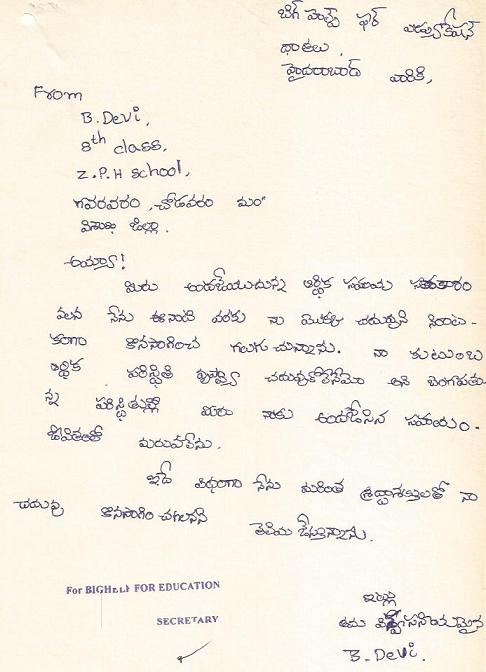 బిగ్ హెల్ప్ ఫర్ ఎడ్యుకేషన్
దాతలు.
హైదరాబాద్ వారికి,
From
B. Devi,
8th class,
Z.P.H school,
గవరవరం, చోడవరం మం"
విశాఖ జిల్లా.
అయ్యా!
మీరు అందజేయుచున్న ఆర్థిక సహాయ సహకారం
వలన నేను ఈనాటి వరకు నా యొక్క చదువుని నిరాట-
కంగా కొనసాగించ గలుగుచున్నాను. నా కుటుంబ
ఆర్థిక పరిస్థితి దృష్ట్యా చదువుకోలేనేమో అని బెంగపడుతు-
న్న పరిస్థితుల్లో మీరు నాకు అందజేసిన సహాయం
జీవితంలో మరువలేను.
ఇదే విధంగా నేను మరింత శ్రద్ధాశక్తులతో నా
చదువు కొనసాగించగలనని తెలియ జేస్తున్నాను.
For BIGHELP FOR EDUCATION
SECRETARY
ఇట్లు
తమ విశ్వసనీయమైన
B. Devi.